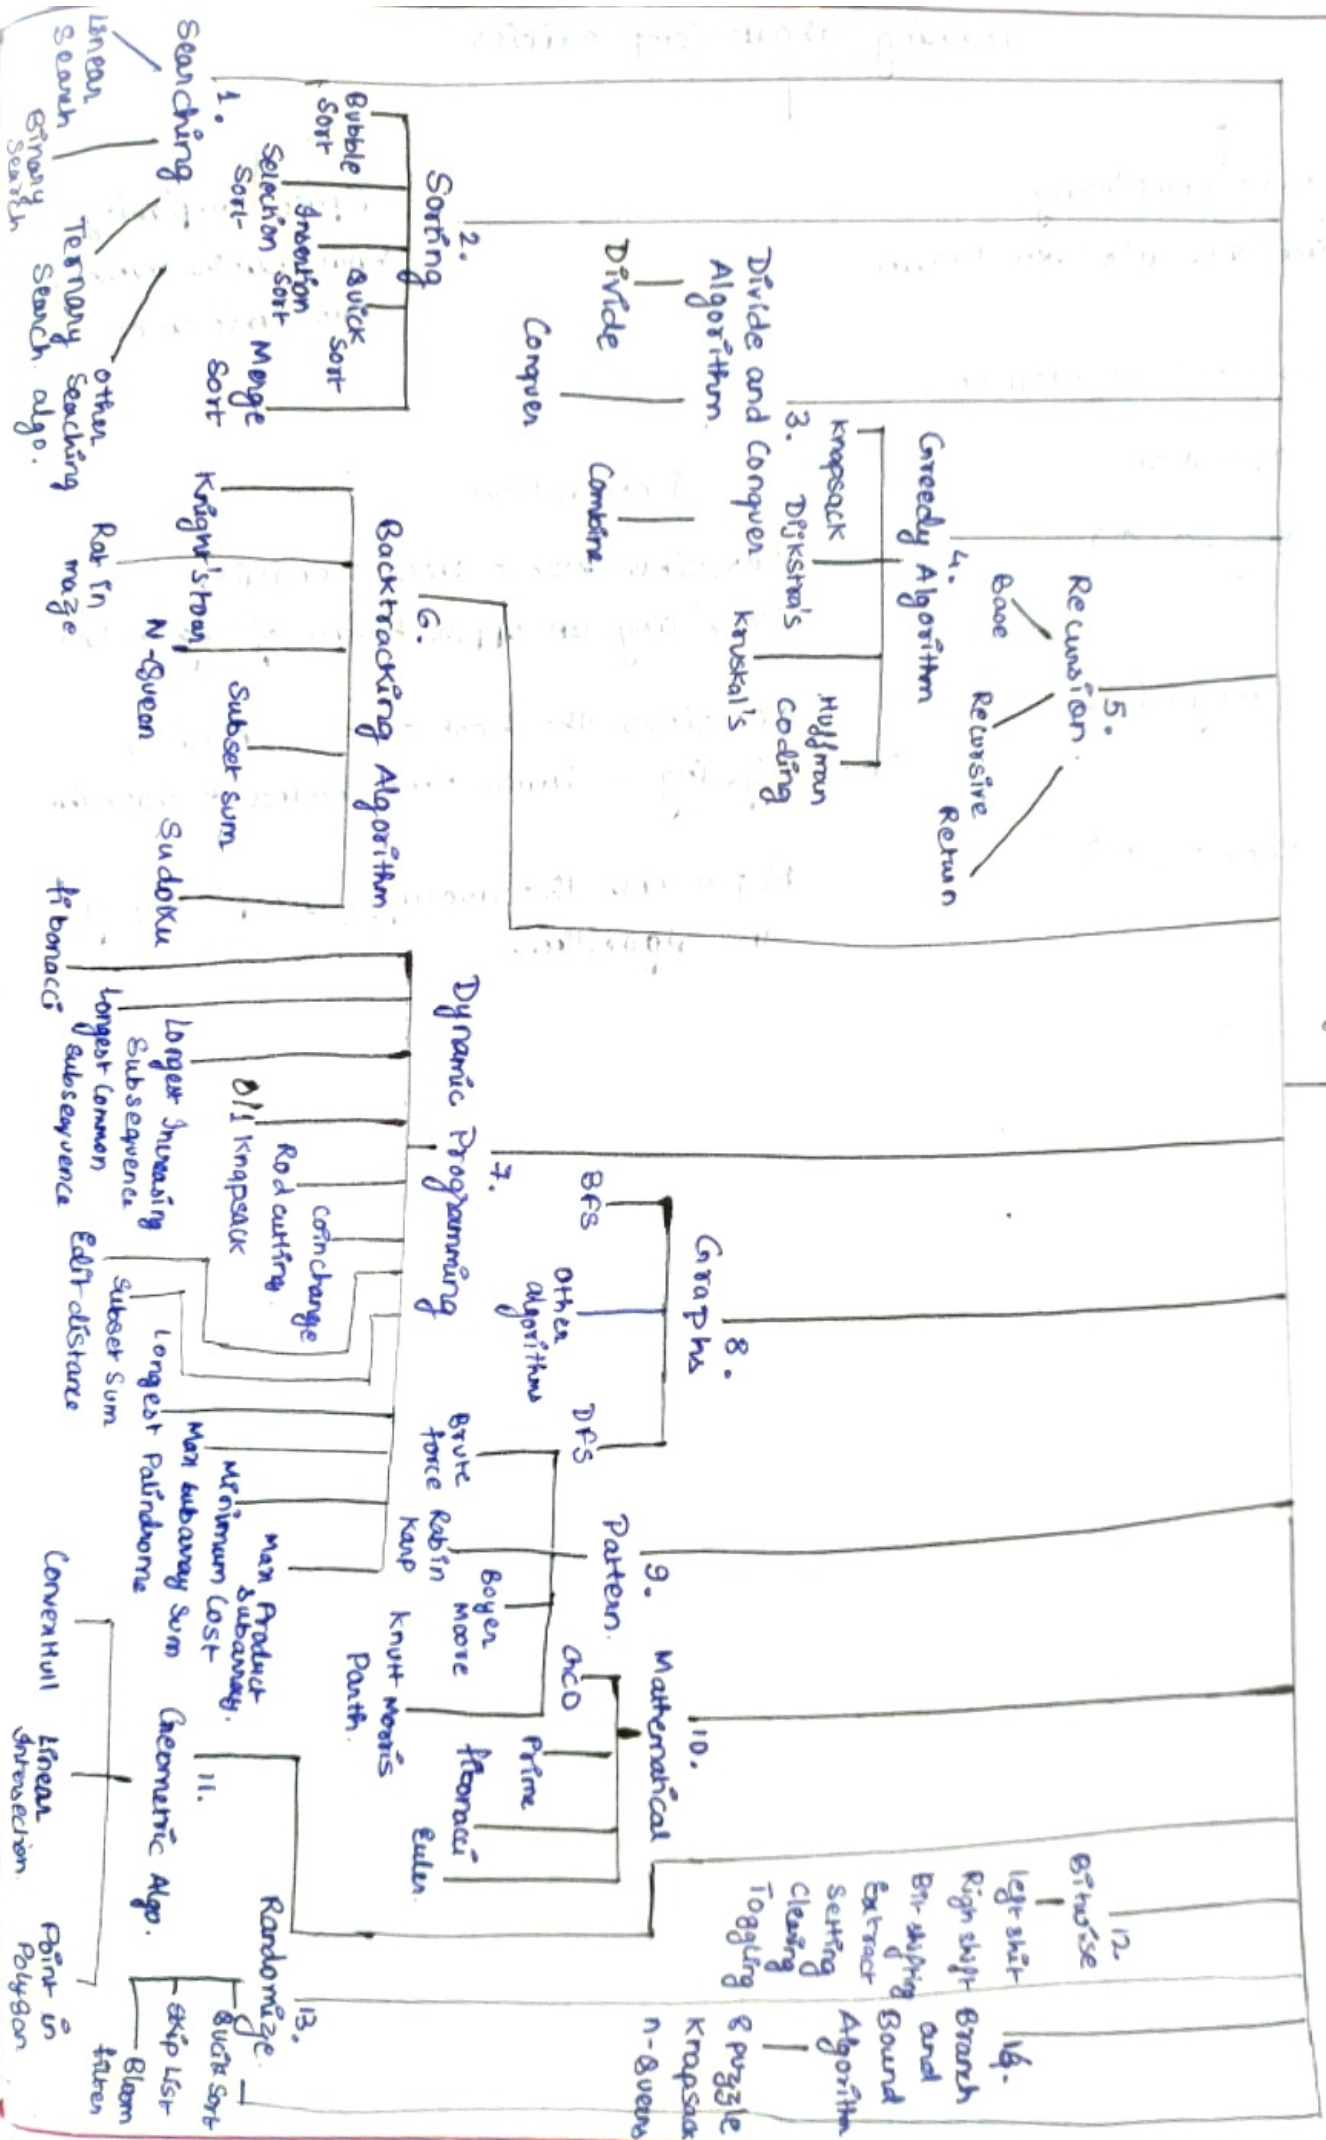 1.
Searching
Linear
Search
Binary
Search
Ternary
Search algo.
Other
Seaching
2.
Sorting
Bubble
Sort
Selection
Sort
Insertion
Sort
Quick
Sort
Merge
Sort
3.
Divide and Conquer
Algorithm.
Divide
Conquer
Combine.
4.
Greedy Algorithm
Knapsack
Dijkstra's
Kruskal's
Huffman
Coding
5.
Recursion.
Base
Recursive
Return
6.
Backtracking Algorithm
Knight's tour
Rat in
maze
N-Queen
Subset sum
Sudoku
7.
Dynamic Programming
fibonacci
Longest Common
subsequence
Longest Increasing
Subsequence
0/1 Knapsack
Rod cutting.
Coin change
Edit distance
Subset Sum
Longest Palindrome
Max subarray Sum
Minimum Cost
Max Product
Subarray.
8.
Graphs
BFS
Other
algorithms
DFS
9.
Pattern.
Brute
force
Rabin
Karp
Boyer
Moore
Knutt Morris
Panth.
10.
Mathematical
GCD
Prime
fibonacci
Euler.
11.
Geometric Algo.
Convex Hull
Linear
Intersection.
Point in
Polygon
12.
Bitwise
left shit
Righ shift
Bit shifting
Extract
Setting
Clearing
Toggling
13.
Randomize.
Quick sort
Skip List
Bloom
14.
Branch
and
Bound
Algorithm
8 puzzle
Knapsack
n-Queens